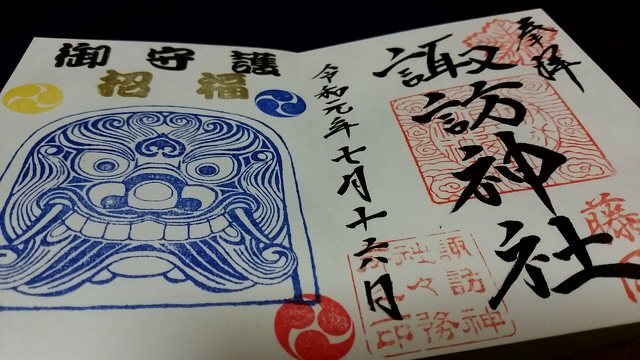 奉拝
諏訪神社
藤
諏訪神
社々務
印
令和元年七月十六月
御守護
招福